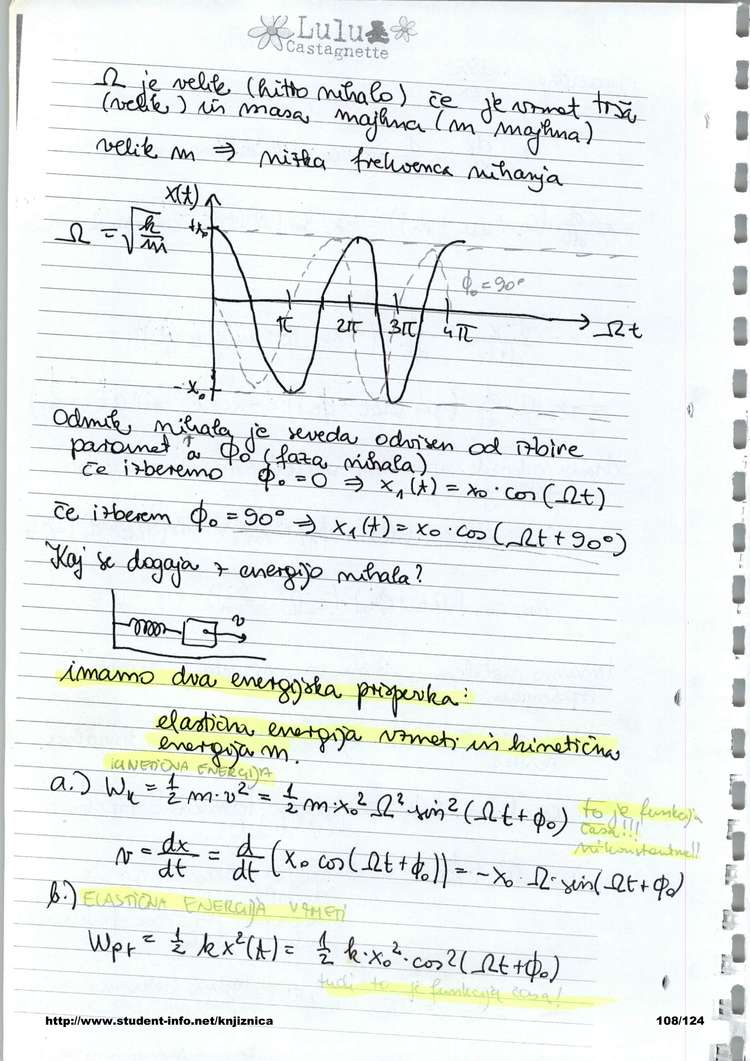 Lulu
Castagnette
Ω je velik (hitro nihalo) če je vzmet trša
(velik) in masa majhna (m majhna)
velik m ⇒ nizka frekvenca nihanja
x(t)
Ω = √(k/m)
+x₀
ϕ₀ = 90°
π 2π 3π 4π Ωt
-x₀
Odmik nihala je seveda odvisen od izbire
parametra ϕ₀ (faza nihala)
če izberemo ϕ₀ = 0 ⇒ x₁(t) = x₀ · cos(Ωt)
če izberem ϕ₀ = 90° ⇒ x₁(t) = x₀ · cos(Ωt + 90°)
Kaj se dogaja z energijo nihala?
v
imamo dva energijska prispevka:
elastična energija vzmeti in kinetična
energija m.
KINETIČNA ENERGIJA
a.) Wk = 1/2 m · v² = 1/2 m · x₀² Ω² · sin²(Ωt + ϕ₀)
to je funkcija
časa!!!
ni konstantna!!
v = dx/dt = d/dt (x₀ cos(Ωt + ϕ₀)) = -x₀ · Ω · sin(Ωt + ϕ₀)
b.) ELASTIČNA ENERGIJA VZMETI
Wpr = 1/2 k x²(t) = 1/2 k · x₀² · cos²(Ωt + ϕ₀)
tudi to je funkcija časa!
http://www.student-info.net/knjiznica
108/124